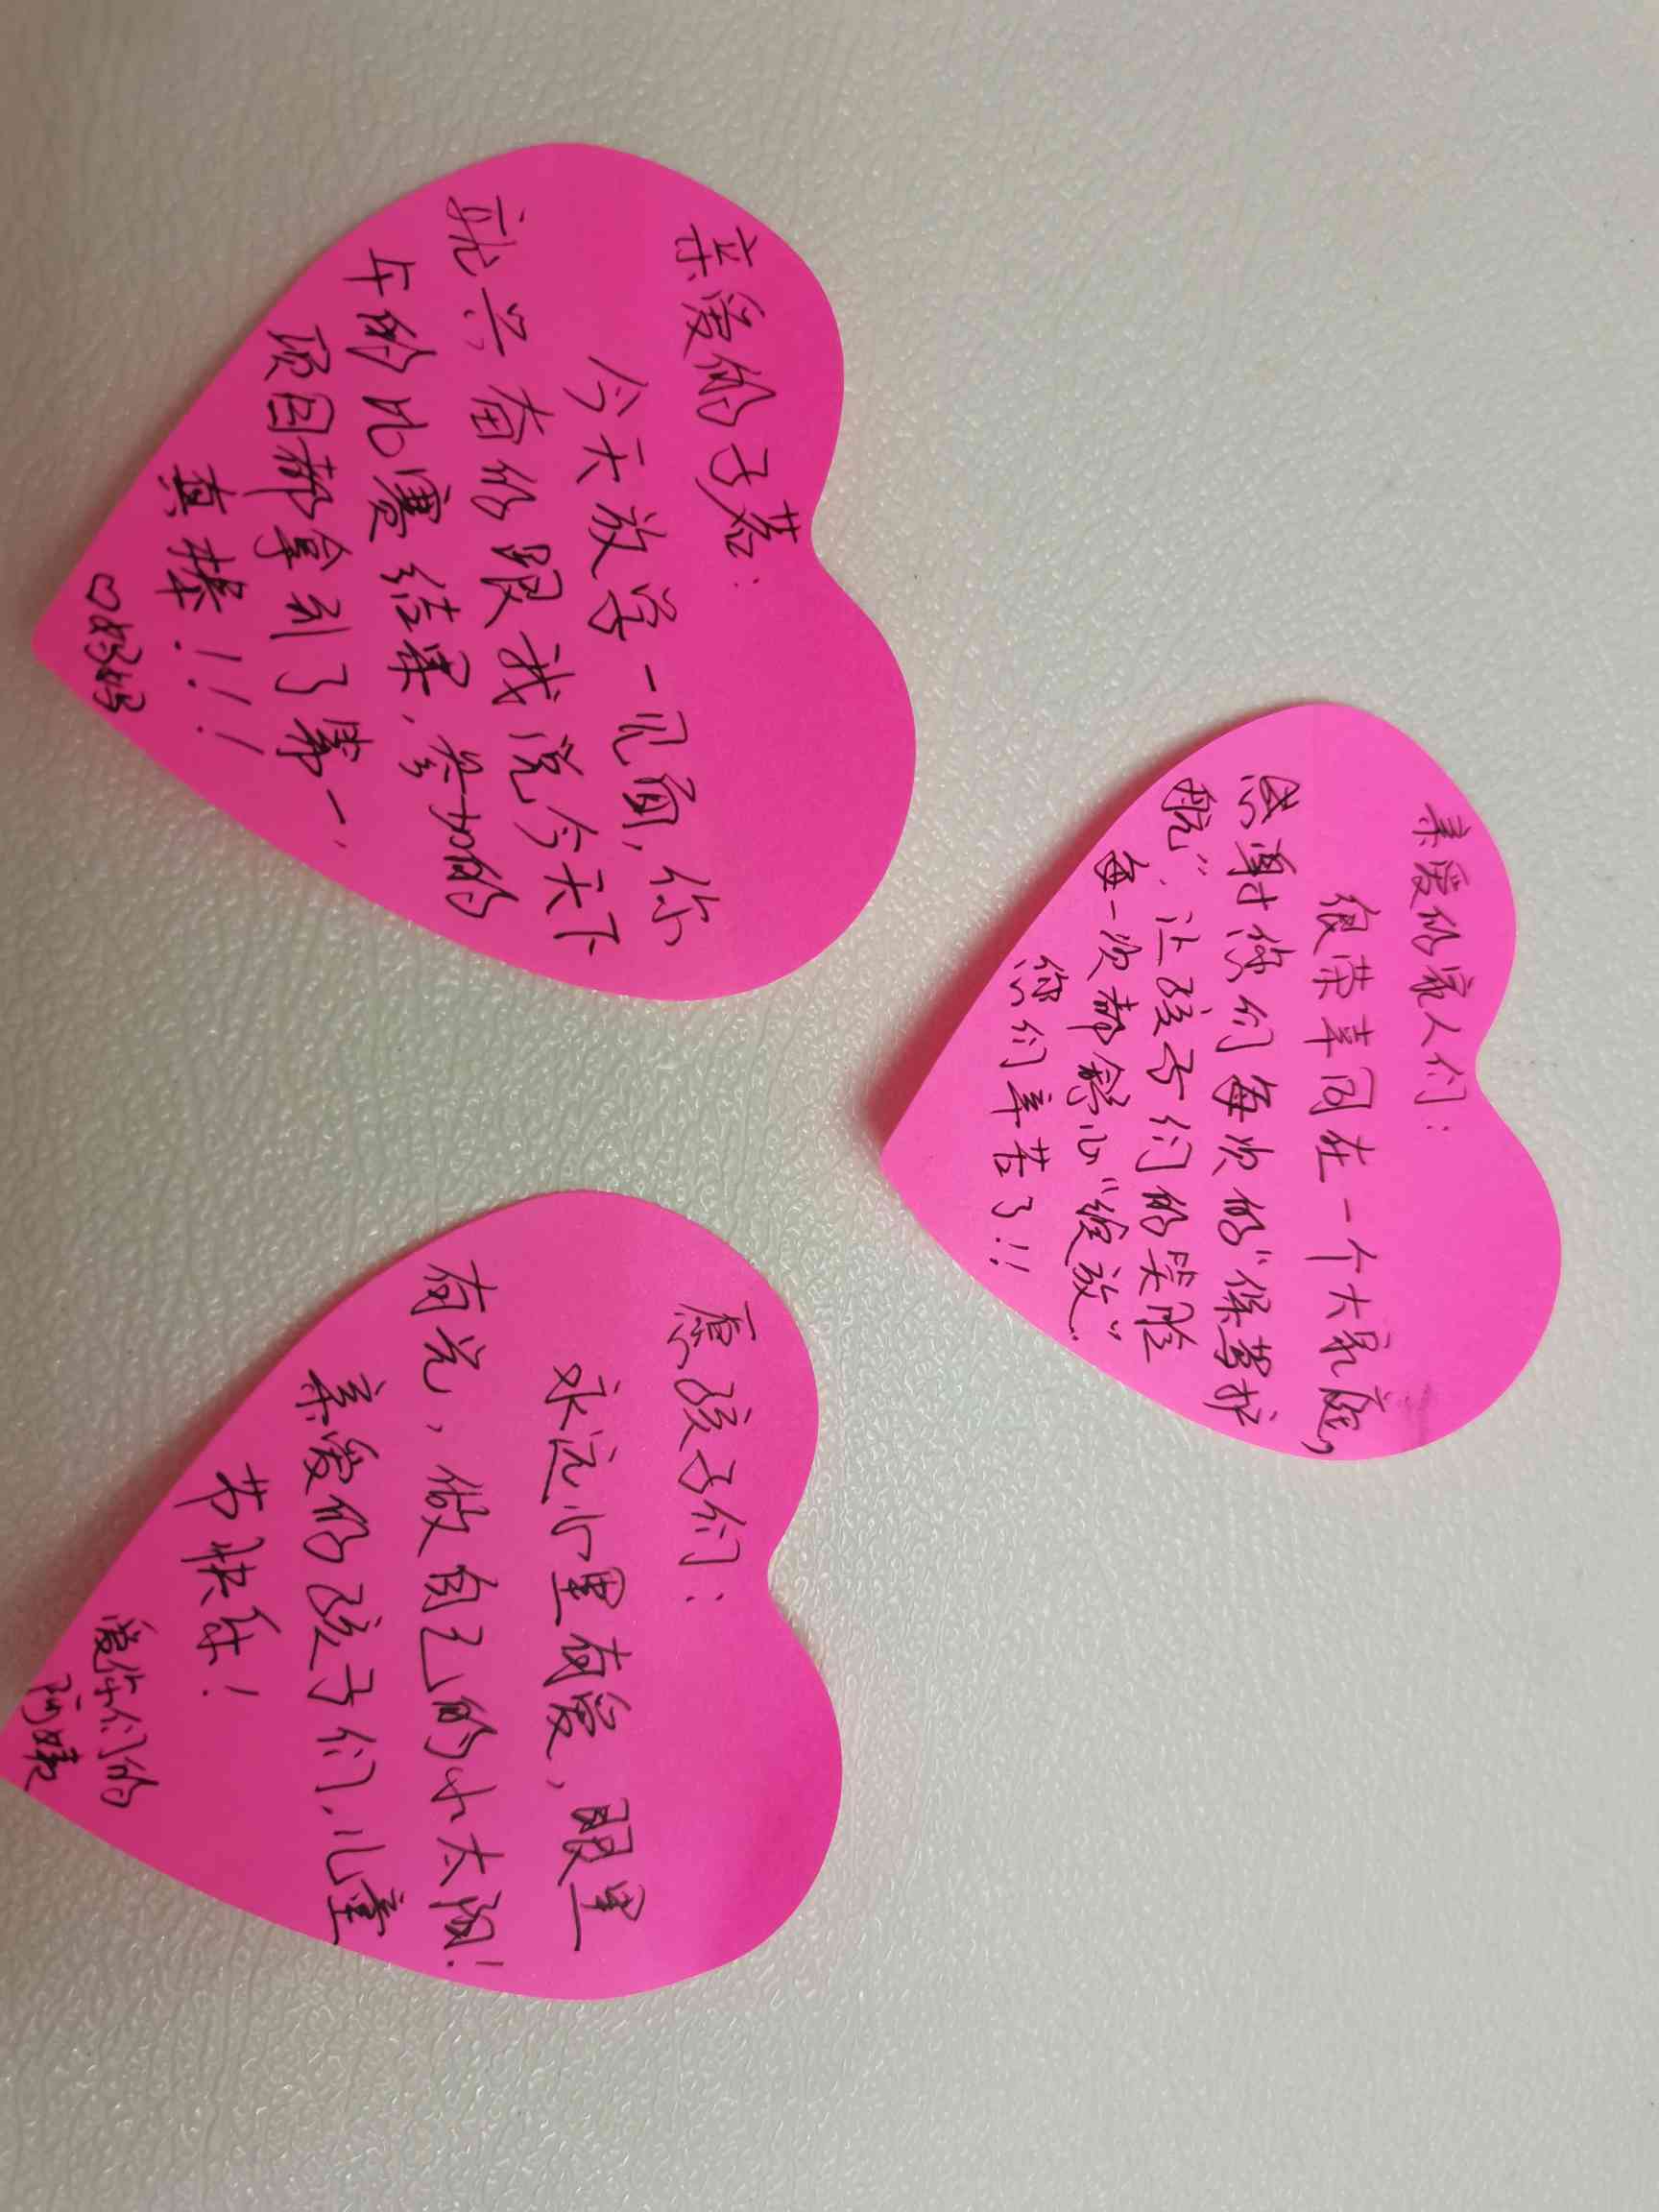 亲爱的子茗：
今天放学一见面，你
就兴奋的跟我说今天下
午的比赛结果，参加的
项目都拿到了第一，
真棒！！！
♡妈妈
亲爱的家人们：
很荣幸同在一个大家庭，
感谢你们每次的“保驾护
航”，让孩子们的笑脸
每一次都舒心“绽放”
您们辛苦了！！
愿孩子们：
永远心里有爱，眼里
有光，做自己的小太阳！
亲爱的孩子们，儿童
节快乐！
爱你们的
阿姨